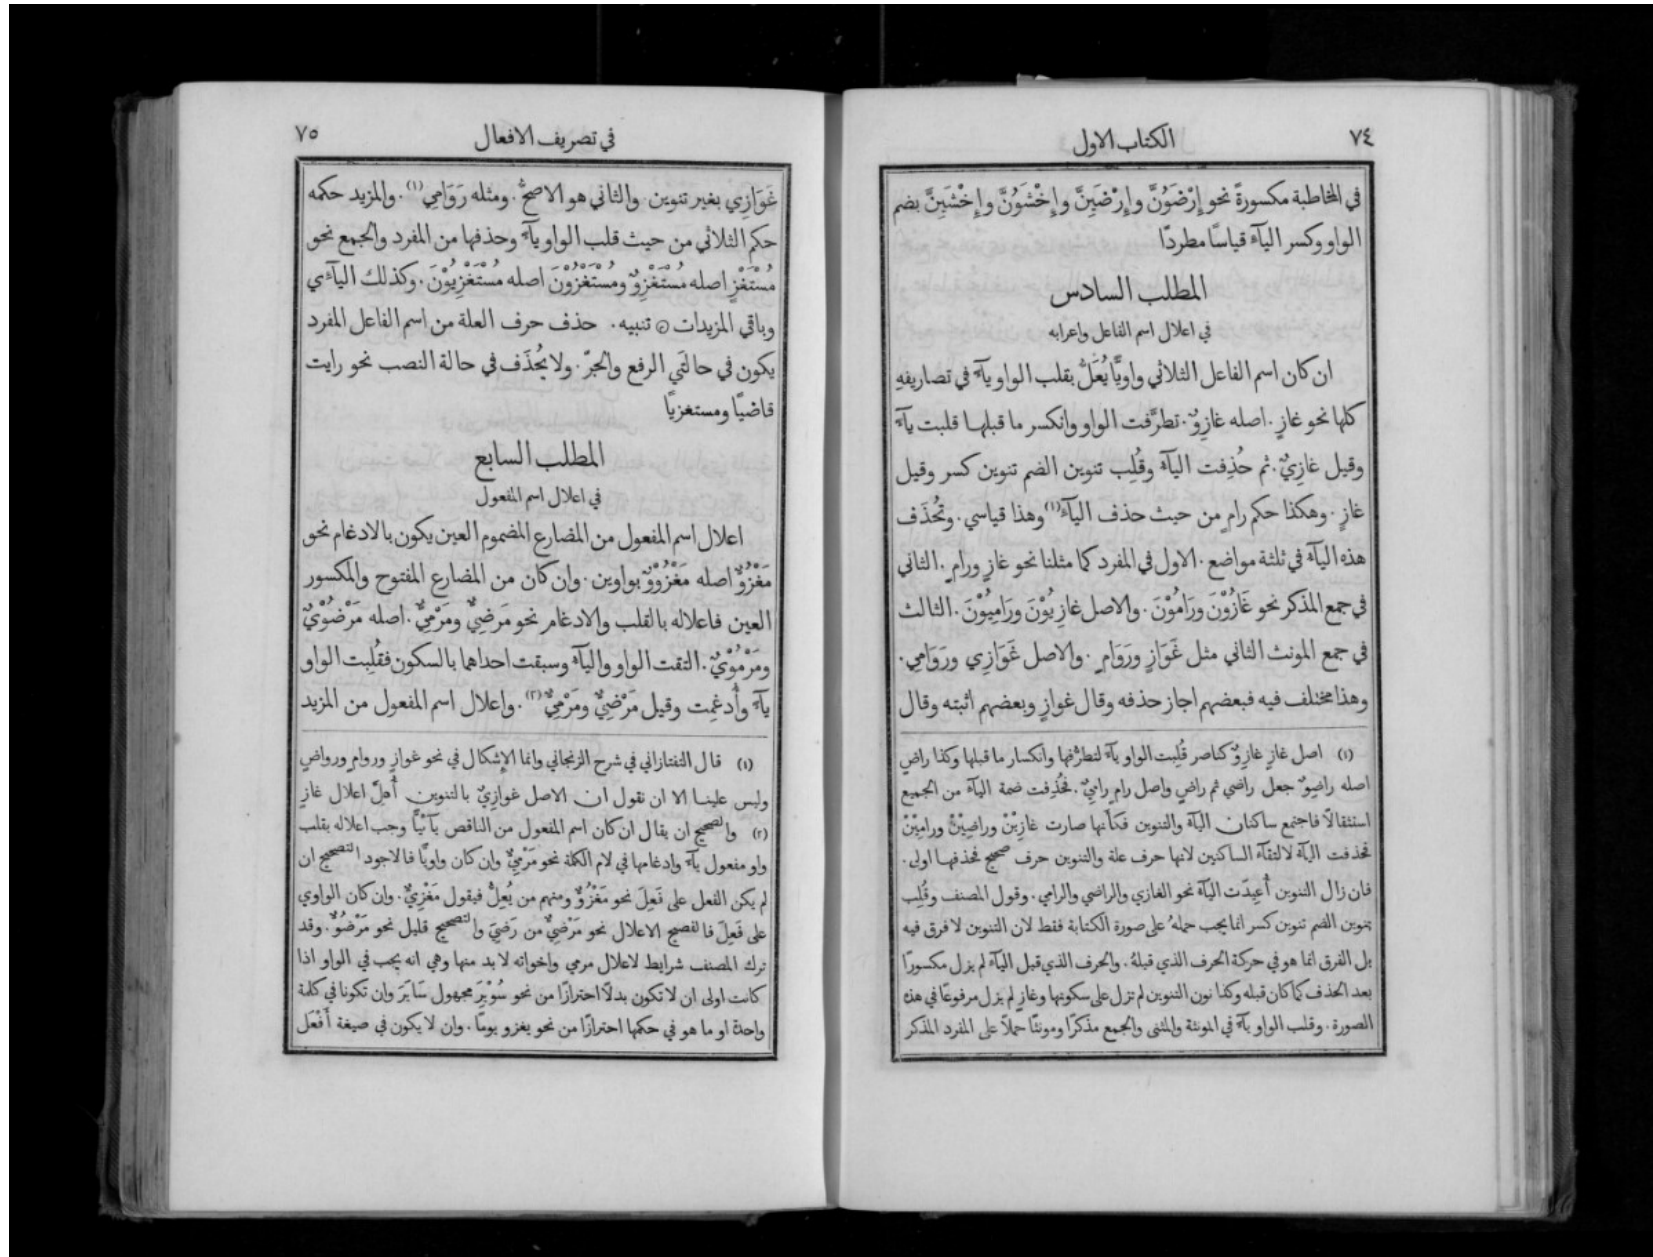 ٧٤
الكتاب الاول
في المخاطبة مكسورةً نحو إِرْضَوُنَّ وإِرْضَيِنَّ وإِخْشَوُنَّ وإِخْشَيِنَّ بضم
الواو وكسر اليآء قياسًا مطردًا
المطلب السادس
في اعلال اسم الفاعل واعرابه
ان كان اسم الفاعل الثلاثي واويًّا يُعَلُّ بقلب الواو يآء في تصاريفهِ
كلها نحو غازٍ. اصله غازِوٌ. تطرَّفت الواو وانكسر ما قبلها قلبت يآء
وقيل غازِيٌ. ثم حُذِفت اليآء وقُلِب تنوين الضم تنوين كسر وقيل
غازٍ. وهكذا حكم رامٍ من حيث حذف اليآء(١) وهذا قياسي. وتُحذَف
هذه اليآء في ثلثة مواضع. الاول في المفرد كما مثلنا نحو غازٍ ورامٍ. الثاني
في جمع المذكر نحو غَازُوْنَ ورَامُوْنَ. والاصل غازِيُوْنَ ورَامِيُوْنَ. الثالث
في جمع المونث الثاني مثل غَوَازٍ ورَوَامٍ. والاصل غَوَازِي ورَوَامِي.
وهذا مختلف فيه فبعضهم اجاز حذفه وقال غوازٍ وبعضهم اثبته وقال
(١) اصل غازٍ غازِوٌ كناصر قُلِبت الواو يآء لتطرُّفها وانكسار ما قبلها وكذا راضٍ
اصله راضِوٌ جعل راضي ثم راضٍ واصل رامٍ رامِيٌ. فحُذِفت ضمة اليآء من الجميع
استثقالًا فاجتمع ساكنان اليآء والتنوين فكأنها صارت غازِيْنْ وراضِيْنْ ورامِيْنْ
فحذفت اليآء لالتقآء الساكنين لانها حرف علة والتنوين حرف صحيح فحذفها اولى.
فان زال التنوين أُعِيدَت اليآء نحو الغازي والراضي والرامي. وقول المصنف وقُلِب
تنوين الضم تنوين كسر انما يجب حملهُ على صورة الكتابة فقط لان التنوين لا فرق فيه
بل الفرق انما هو في حركة الحرف الذي قبلهُ. والحرف الذي قبل اليآء لم يزل مكسورًا
بعد الحذف كما كان قبله وكذا نون التنوين لم تزل على سكونها وغازٍ لم يزل مرفوعًا في هذه
الصورة. وقلب الواو يآء في المونثة والمثنى والجمع مذكرًا ومونثًا حملًا على المفرد المذكر
في تصريف الافعال
٧٥
غَوَازِي بغير تنوين. والثاني هو الاصحُّ. ومثله رَوَامِي(١). والمزيد حكمه
حكم الثلاثي من حيث قلب الواو يآء وحذفها من المفرد والجمع نحو
مُسْتَغْزٍ اصله مُسْتَغْزِوٌ ومُسْتَغْزُوْنَ اصله مُسْتَغْزِيُوْنَ. وكذلك اليآءي
وباقي المزيدات ۞ تنبيه. حذف حرف العلة من اسم الفاعل المفرد
يكون في حالتَي الرفع والجرّ. ولا يُحذَف في حالة النصب نحو رايت
قاضيًا ومستغزيًا
المطلب السابع
في اعلال اسم المفعول
اعلال اسم المفعول من المضارع المضموم العين يكون بالادغام نحو
مَغْزُوٌّ اصله مَغْزُوْوٌ بواوين. وان كان من المضارع المفتوح والمكسور
العين فاعلاله بالقلب والادغام نحو مَرضِيٌّ ومَرْمِيٌّ. اصله مَرْضُوْيٌ
ومَرْمُوْيٌ. التقت الواو واليآء وسبقت احداهما بالسكون فقُلِبت الواو
يآء وأُدغِمت وقيل مَرْضِيٌّ ومَرْمِيٌّ(٢). واعلال اسم المفعول من المزيد
(١) قال التفتازاني في شرح الزنجاني وانما الإشكال في نحو غوازٍ وروامٍ ورواضٍ
وليس علينا الا ان نقول ان الاصل غوازِيٌ بالتنوين أُعِلَّ اعلال غازٍ
(٢) والصحيح ان يقال ان كان اسم المفعول من الناقص يآئيًّا وجب اعلاله بقلب
واو مفعول يآء وادغامها في لام الكلمة نحو مَرْمِيٌّ وان كان واويًّا فالاجود التصحيح ان
لم يكن الفعل على فَعِلَ نحو مَغْزُوٌّ ومنهم من يُعِلُّ فيقول مَغْزِيٌّ. وان كان الواوي
على فَعِلَ فالفصيح الاعلال نحو مَرْضِيٌّ من رَضِيَ والتصحيح قليل نحو مَرْضُوٌّ. وقد
ترك المصنف شرايط لاعلال مرمي واخواته لا بد منها وهي انه يجب في الواو اذا
كانت اولى ان لا تكون بدلًا احترازًا من نحو سُوْيِرَ مجهول سَايَرَ وان تكونا في كلمة
واحدة او ما هو في حكمها احترازًا من نحو يغزو يومًا. وان لا يكون في صيغة أَفْعَل